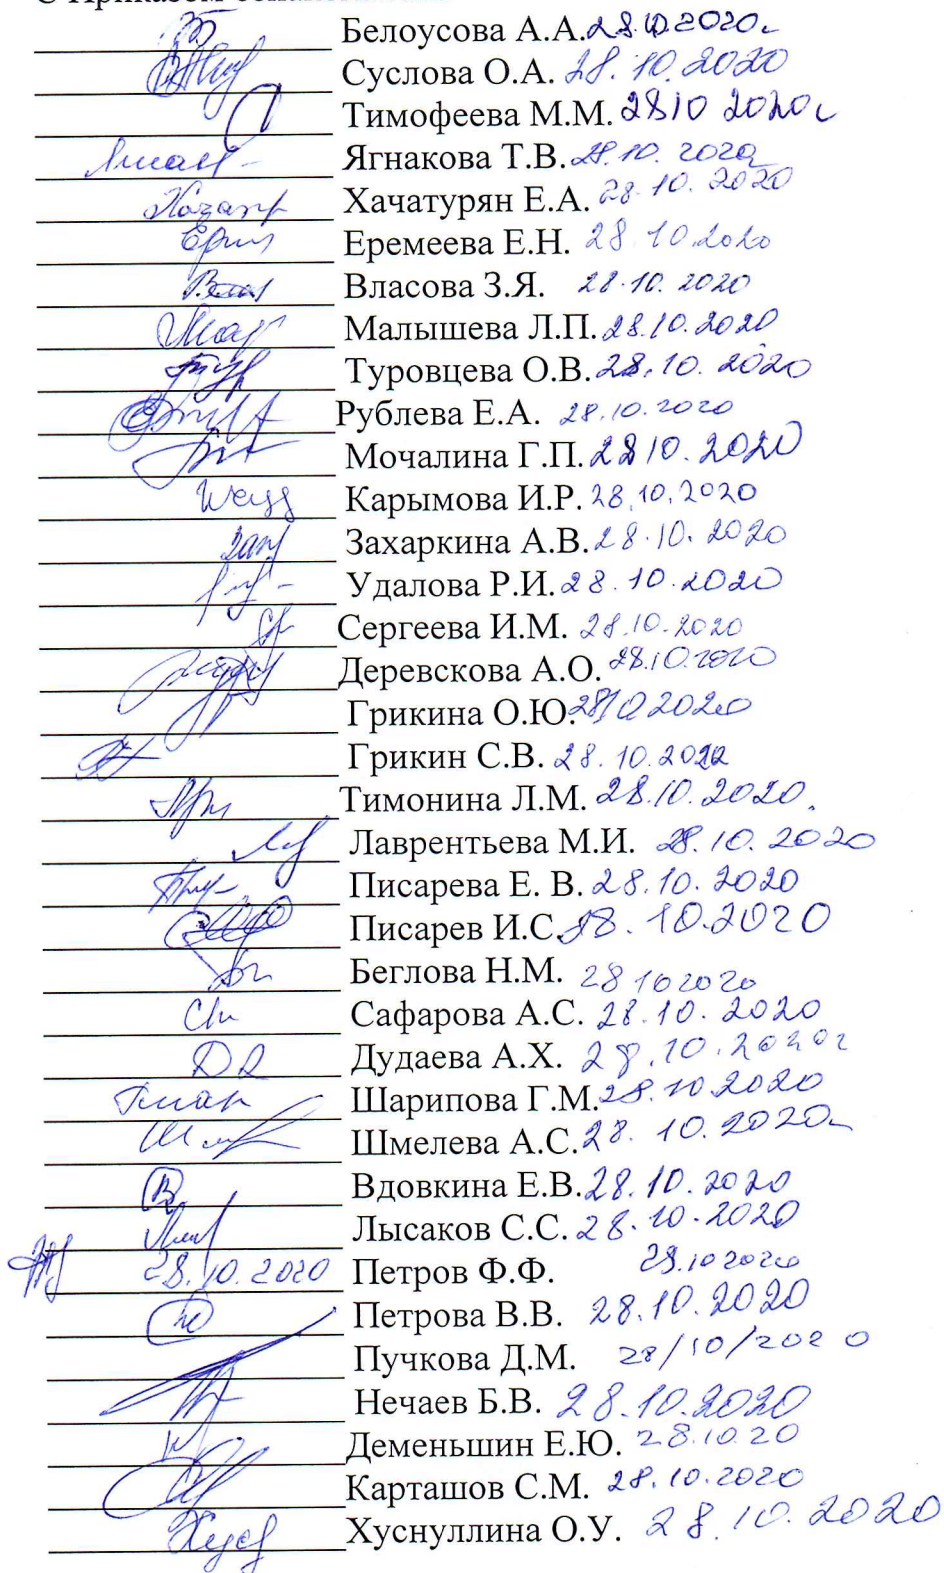 С Приказом
Белоусова А.А. 28.10.2020г
Суслова О.А. 28.10.2020
Тимофеева М.М. 28 10 2020г
Ягнакова Т.В. 28.10.2020
Хачатурян Е.А. 28.10.2020
Еремеева Е.Н. 28 10.2020
Власова З.Я. 28.10.2020
Малышева Л.П. 28.10.2020
Туровцева О.В. 28.10.2020
Рублева Е.А. 28.10.2020
Мочалина Г.П. 28 10.2020
Карымова И.Р. 28.10.2020
Захаркина А.В. 28.10.2020
Удалова Р.И. 28.10.2020
Сергеева И.М. 28.10.2020
Деревскова А.О. 28.10.2020
Грикина О.Ю. 28 10 2020
Грикин С.В. 28.10.2020
Тимонина Л.М. 28.10.2020.
Лаврентьева М.И. 28.10.2020
Писарева Е. В. 28.10.2020
Писарев И.С. 28.10.2020
Беглова Н.М. 28 10 2020
Сафарова А.С. 28.10.2020
Дудаева А.Х. 28.10.2020г
Шарипова Г.М. 28.10.2020
Шмелева А.С. 28.10.2020г
Вдовкина Е.В. 28.10.2020
Лысаков С.С. 28.10.2020
28.10.2020 Петров Ф.Ф. 28.10 2020
Петрова В.В. 28.10.2020
Пучкова Д.М. 28/10/2020
Нечаев Б.В. 28.10.2020
Деменьшин Е.Ю. 28.10.20
Карташов С.М. 28.10.2020
Хуснуллина О.У. 28.10.2020